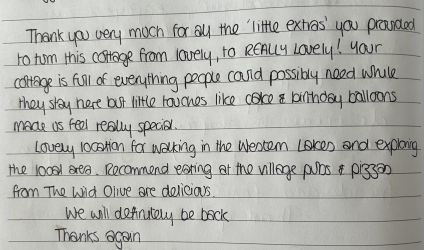 Thank you very much for all the 'little extras' you provided
to turn this cottage from lovely, to REALLY Lovely! Your
cottage is full of everything people could possibly need while
they stay here but little touches like cake & birthday balloons
made us feel really special.
Lovely location for walking in the Western Lakes and exploring
the local area. Recommend eating at the village pubs & pizzas
from The Wild Olive are delicious.
We will definitely be back
Thanks again